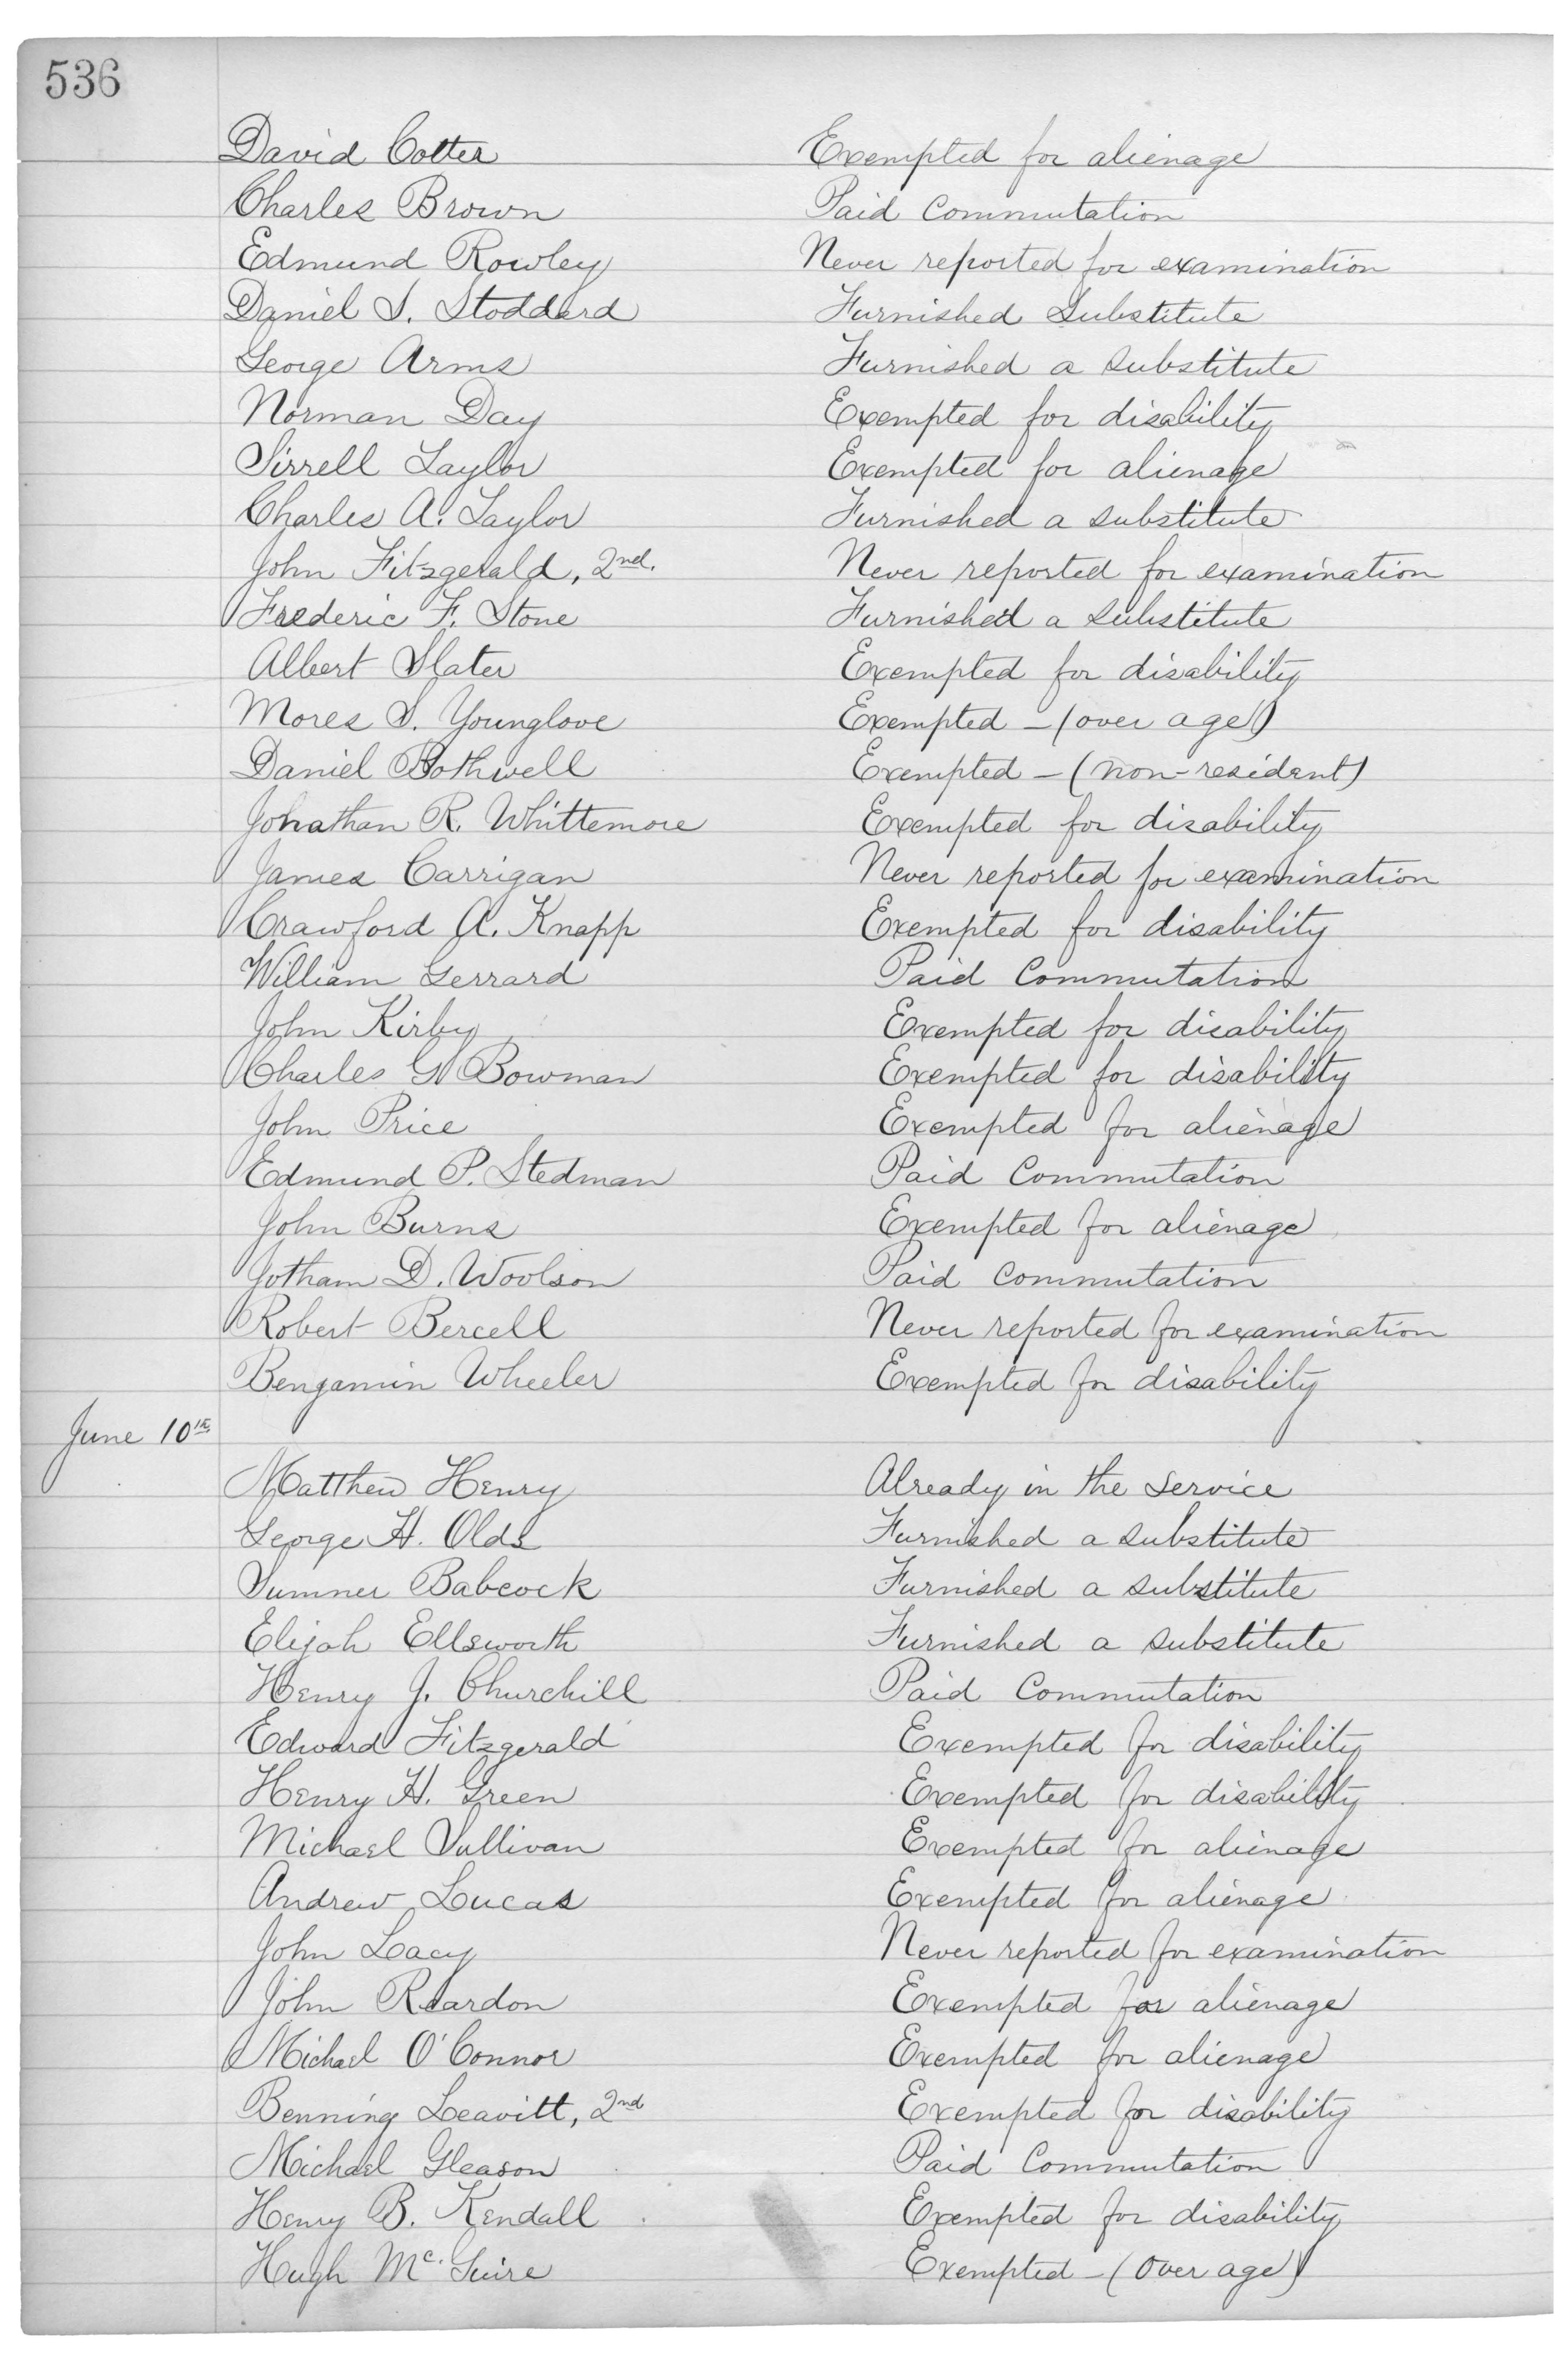 536
David Cotter Exempted for alienage
Charles Brown Paid Commutation
Edmund Rowley Never reported for examination
Daniel S. Stoddard Furnished Substitute
George Arms Furnished a substitute
Norman Day Exempted for disability
Sirrell Taylor Exempted for alienage
Charles A. Taylor Furnished a substitute
John Fitzgerald, 2nd. Never reported for examination
Frederic F. Stone Furnished a substitute
Albert Slater Exempted for disability
Mores S. Younglove Exempted - (over age)
Daniel Bothwell Exempted - (non-resident)
Johathan R. Whittemore Exempted for disability
James Carrigan Never reported for examination
Crawford A. Knapp Exempted for disability
William Gerrard Paid Commutation
John Kirby Exempted for disability
Charles G. Bowman Exempted for disability
John Price Exempted for alienage
Edmund P. Stedman Paid Commutation
John Burns Exempted for alienage
Jotham D. Woolson Paid Commutation
Robert Bercell Never reported for examination
Bengamin Wheeler Exempted for disability
June 10th
Matthew Henry Already in the service
George H. Olds Furnished a substitute
Sumner Babcock Furnished a substitute
Elijah Ellsworth Furnished a substitute
Henry J. Churchill Paid Commutation
Edward Fitzgerald Exempted for disability
Henry H. Green Exempted for disability
Michael Sullivan Exempted for alienage
Andrew Lucas Exempted for alienage
John Lacy Never reported for examination
John Reardon Exempted for alienage
Michael O'Connor Exempted for alienage
Benning Leavitt, 2nd Exempted for disability
Michael Gleason Paid Commutation
Henry B. Kendall Exempted for disability
Hugh Mc. Guire Exempted - (Over age)